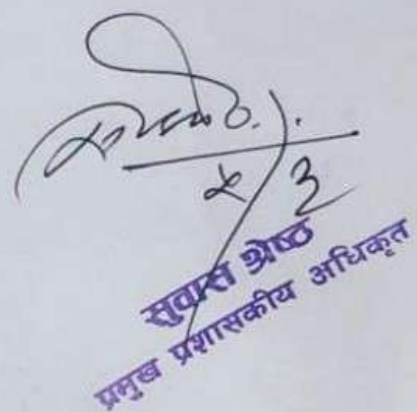 ५/३
सुवास श्रेष्ठ
प्रमुख प्रशासकीय अधिकृत